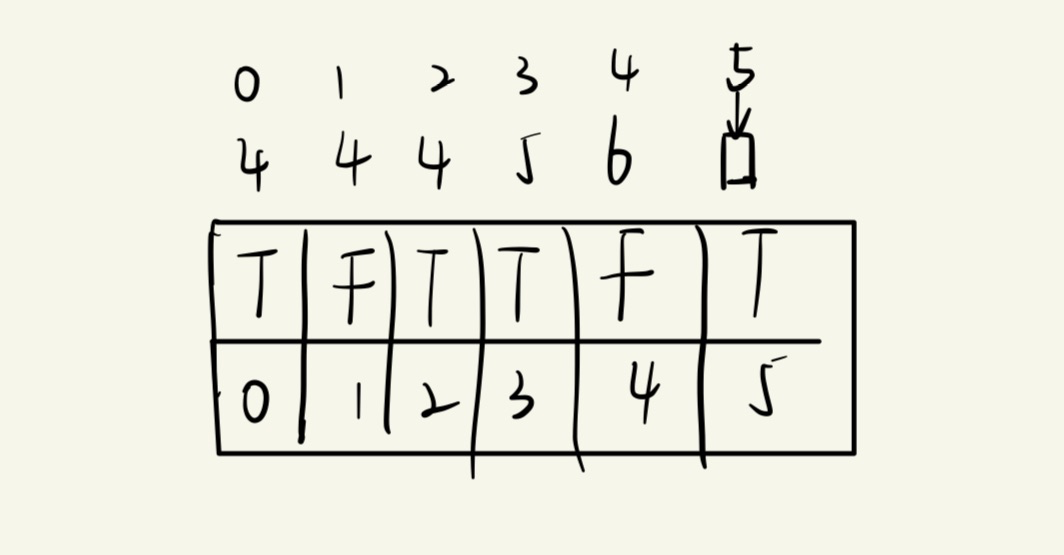 0 1 2 3 4 5
4 4 4 5 6
T F T T F T
0 1 2 3 4 5